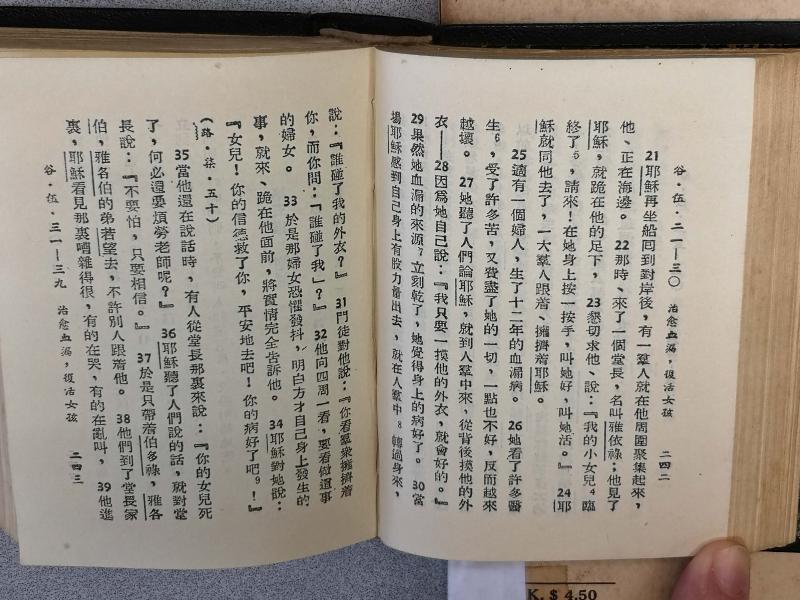 谷・伍・二一—三〇　治愈血漏，復活女孩　二四二
21耶穌再坐船囘到對岸後，有一羣人就在他周圍聚集起來，
他、正在海邊。22那時、來了一個堂長，名叫雅依祿；他見了
耶穌，就跪在他的足下，23懇切求他、說：『我的小女兒4臨
終了5，請來！在她身上按一按手，叫她好，叫她活。』24耶
穌就同他去了，一大羣人跟着、擁擠着耶穌。
25適有一個婦人，生了十二年的血漏病。26她看了許多醫
生6，受了許多苦，又費盡了她的一切，一點也不好，反而越來
越壞。27她聽了人們論耶穌，就到人羣中來，從背後摸他的外
衣——28因爲她自己說：『我只要一摸他的外衣，就會好的。』
29果然她血漏的來源7立刻乾了，她覺得身上的病好了。30當
場耶穌感到自己身上有股力量出去，就在人羣中8轉過身來，
說：『誰碰了我的外衣？』31門徒對他說：『你看羣衆擁擠着
你，而你問：『誰碰了我』？』32他向四周一看，要看做這事
的婦女。33於是那婦女恐懼發抖，明白方才自己身上發生的
事，就來、跪在他面前，將實情完全告訴他。34耶穌對她說：
『女兒！你的信德救了你，平安地去吧！你的病好了吧9！』
（路・柒・五十）
35當他還在說話時，有人從堂長那裏來說：『你的女兒死
了，何必還要煩勞老師呢？』36耶穌聽了人們說的話，就對堂
長說：『不要怕，只要相信。』37於是只帶着伯多祿，雅各
伯，雅各伯的弟若望去，不許別人跟着他。38他們到了堂長家
裏，耶穌看見那裏嘈雜得很，有的在哭，有的在亂叫，39他進
谷・伍・三一—三九　治愈血漏，復活女孩　二四三
K. $ 4.50